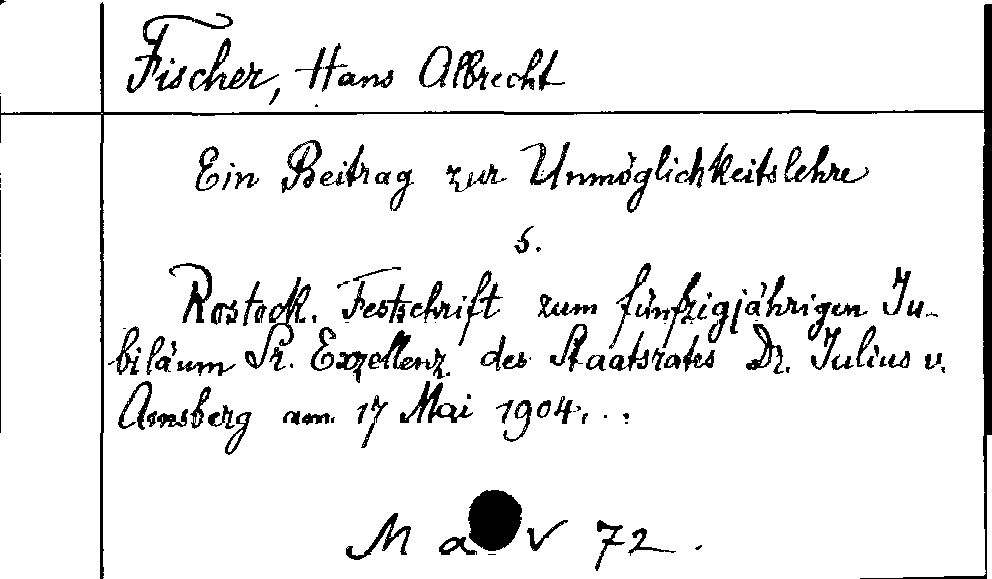 Fischer, Hans Albrecht
Ein Beitrag zur Unmöglichkeitslehre
s.
Rostock. Festschrift zum fünfzigjährigen Ju-
biläum Sr. Exzellenz des Staatsrates Dr. Julius v.
Amsberg am 17 Mai 1904. . .
M a V 72.